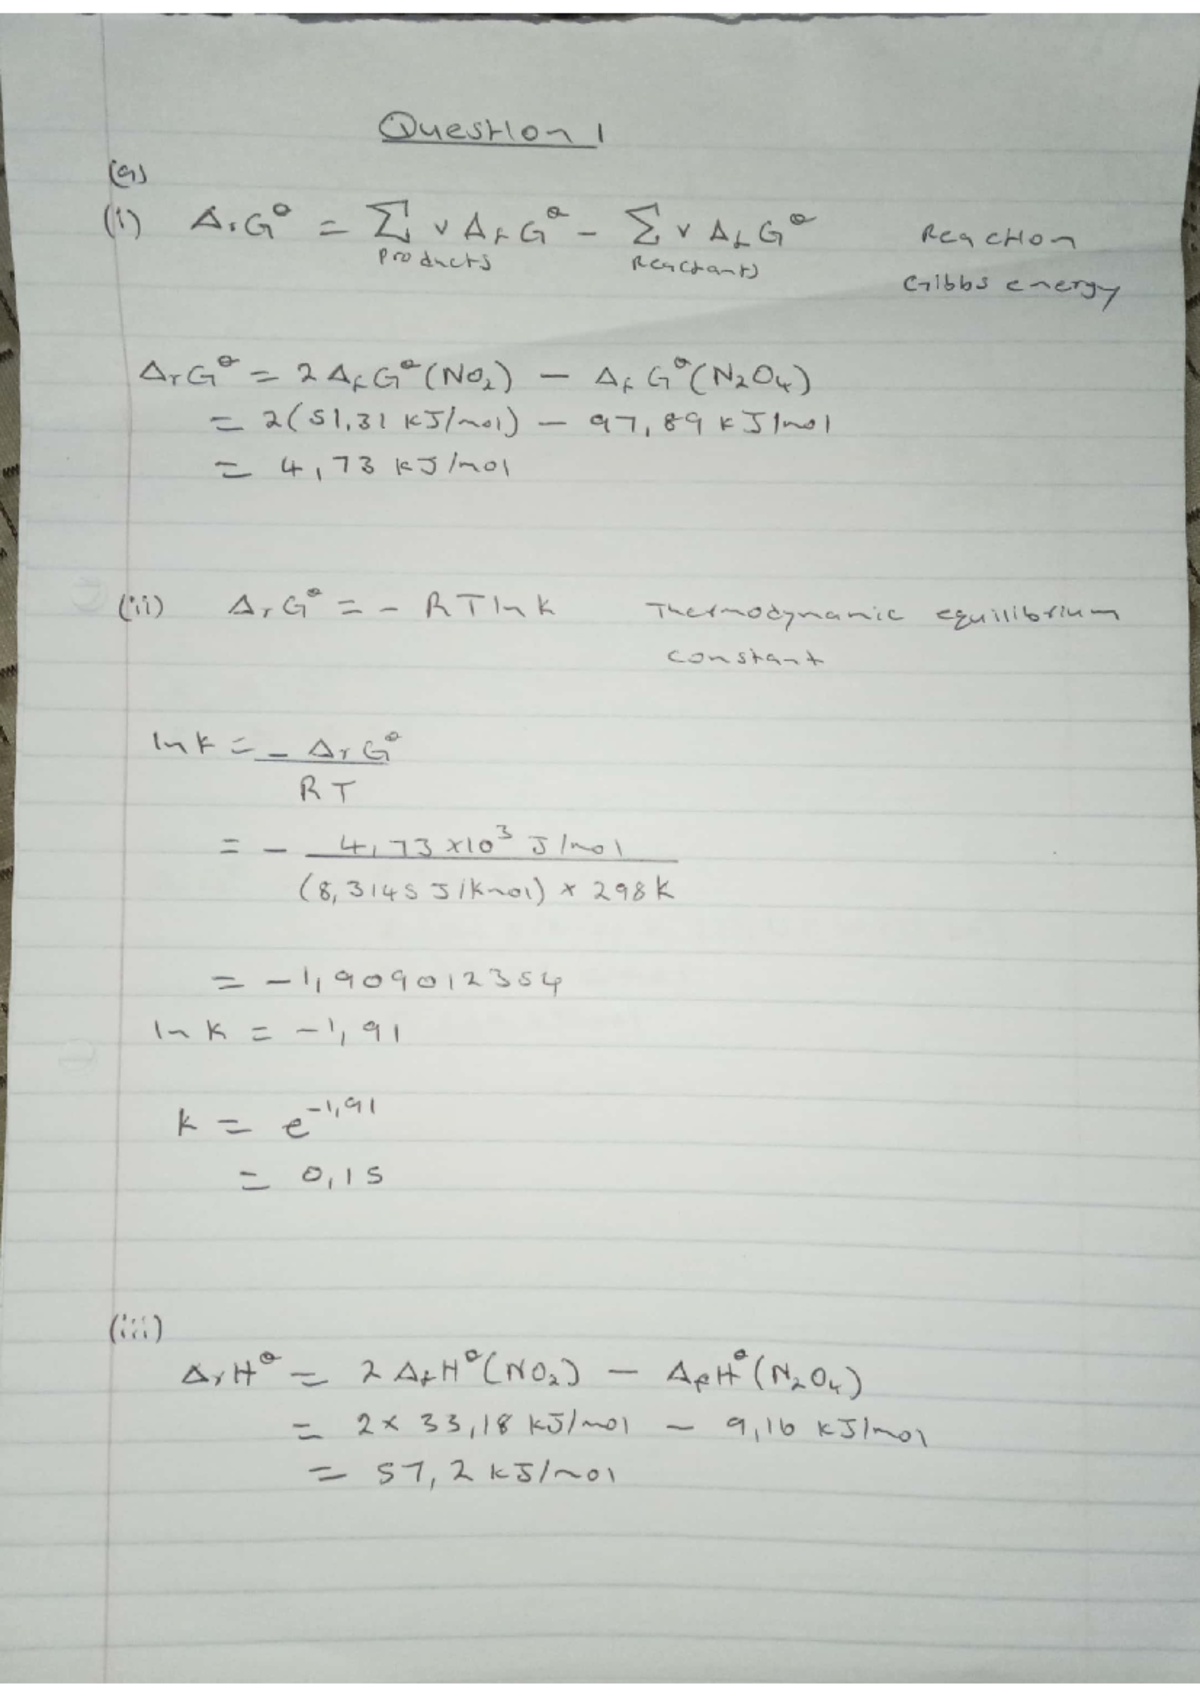 Question 1
(a)
(i) ΔrG° = Σ v ΔfG° − Σ v ΔfG° Reaction
Products Reactants
Gibbs energy
ΔrG° = 2 ΔfG°(NO₂) − ΔfG°(N₂O₄)
= 2(51,31 kJ/mol) − 97,89 kJ/mol
= 4,73 kJ/mol
(ii) ΔrG° = − RTlnK Thermodynamic equilibrium
constant
lnK = − ΔrG°
RT
= − 4,73 x10³ J/mol
(8,3145 J/Kmol) x 298K
= −1,909012354
ln K = −1,91
K = e^−1,91
= 0,15
(iii)
ΔrH° = 2 ΔfH°(NO₂) − ΔfH°(N₂O₄)
= 2x 33,18 kJ/mol − 9,16 kJ/mol
= 57,2 kJ/mol